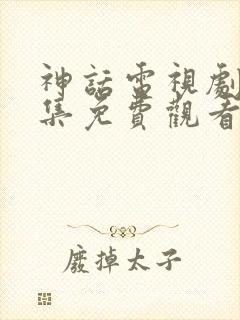 神話電視劇
集免費觀看
廢掉太子